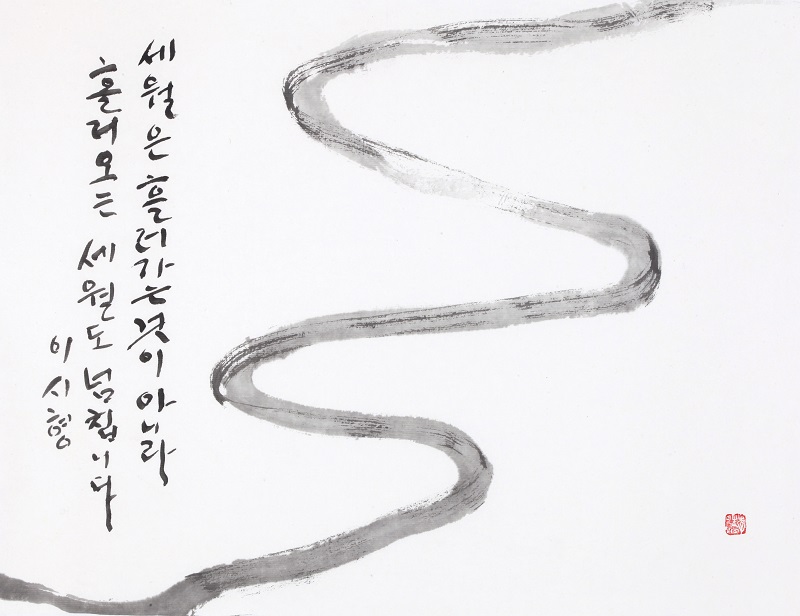 세월은 흘러가는 것이 아니라
흘러오는 세월도 넘칩니다
이시형